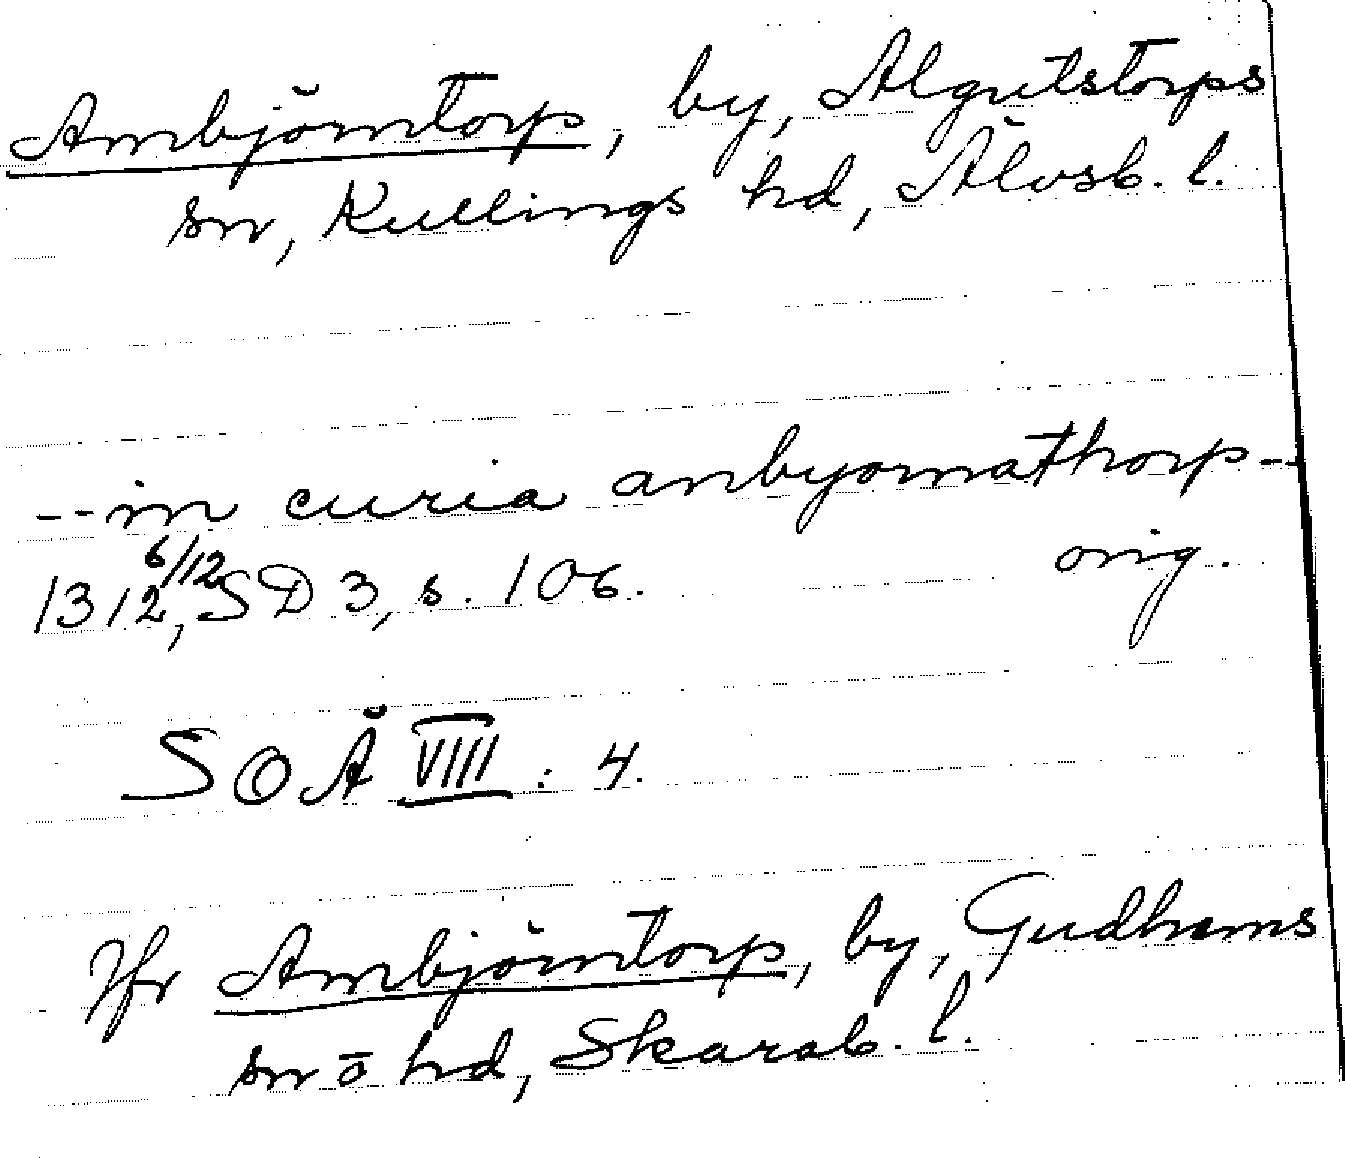 Ambjörntorp, by, Algutstorps
sn, Kullings hd, Älvsb. l.
-- in curia anbyornathorp --
1312 6/12, SD 3, s. 106. orig.
SOÄ VIII : 4.
Jfr Ambjörntorp, by, Gudhems
sn ō hd, Skarab. l.